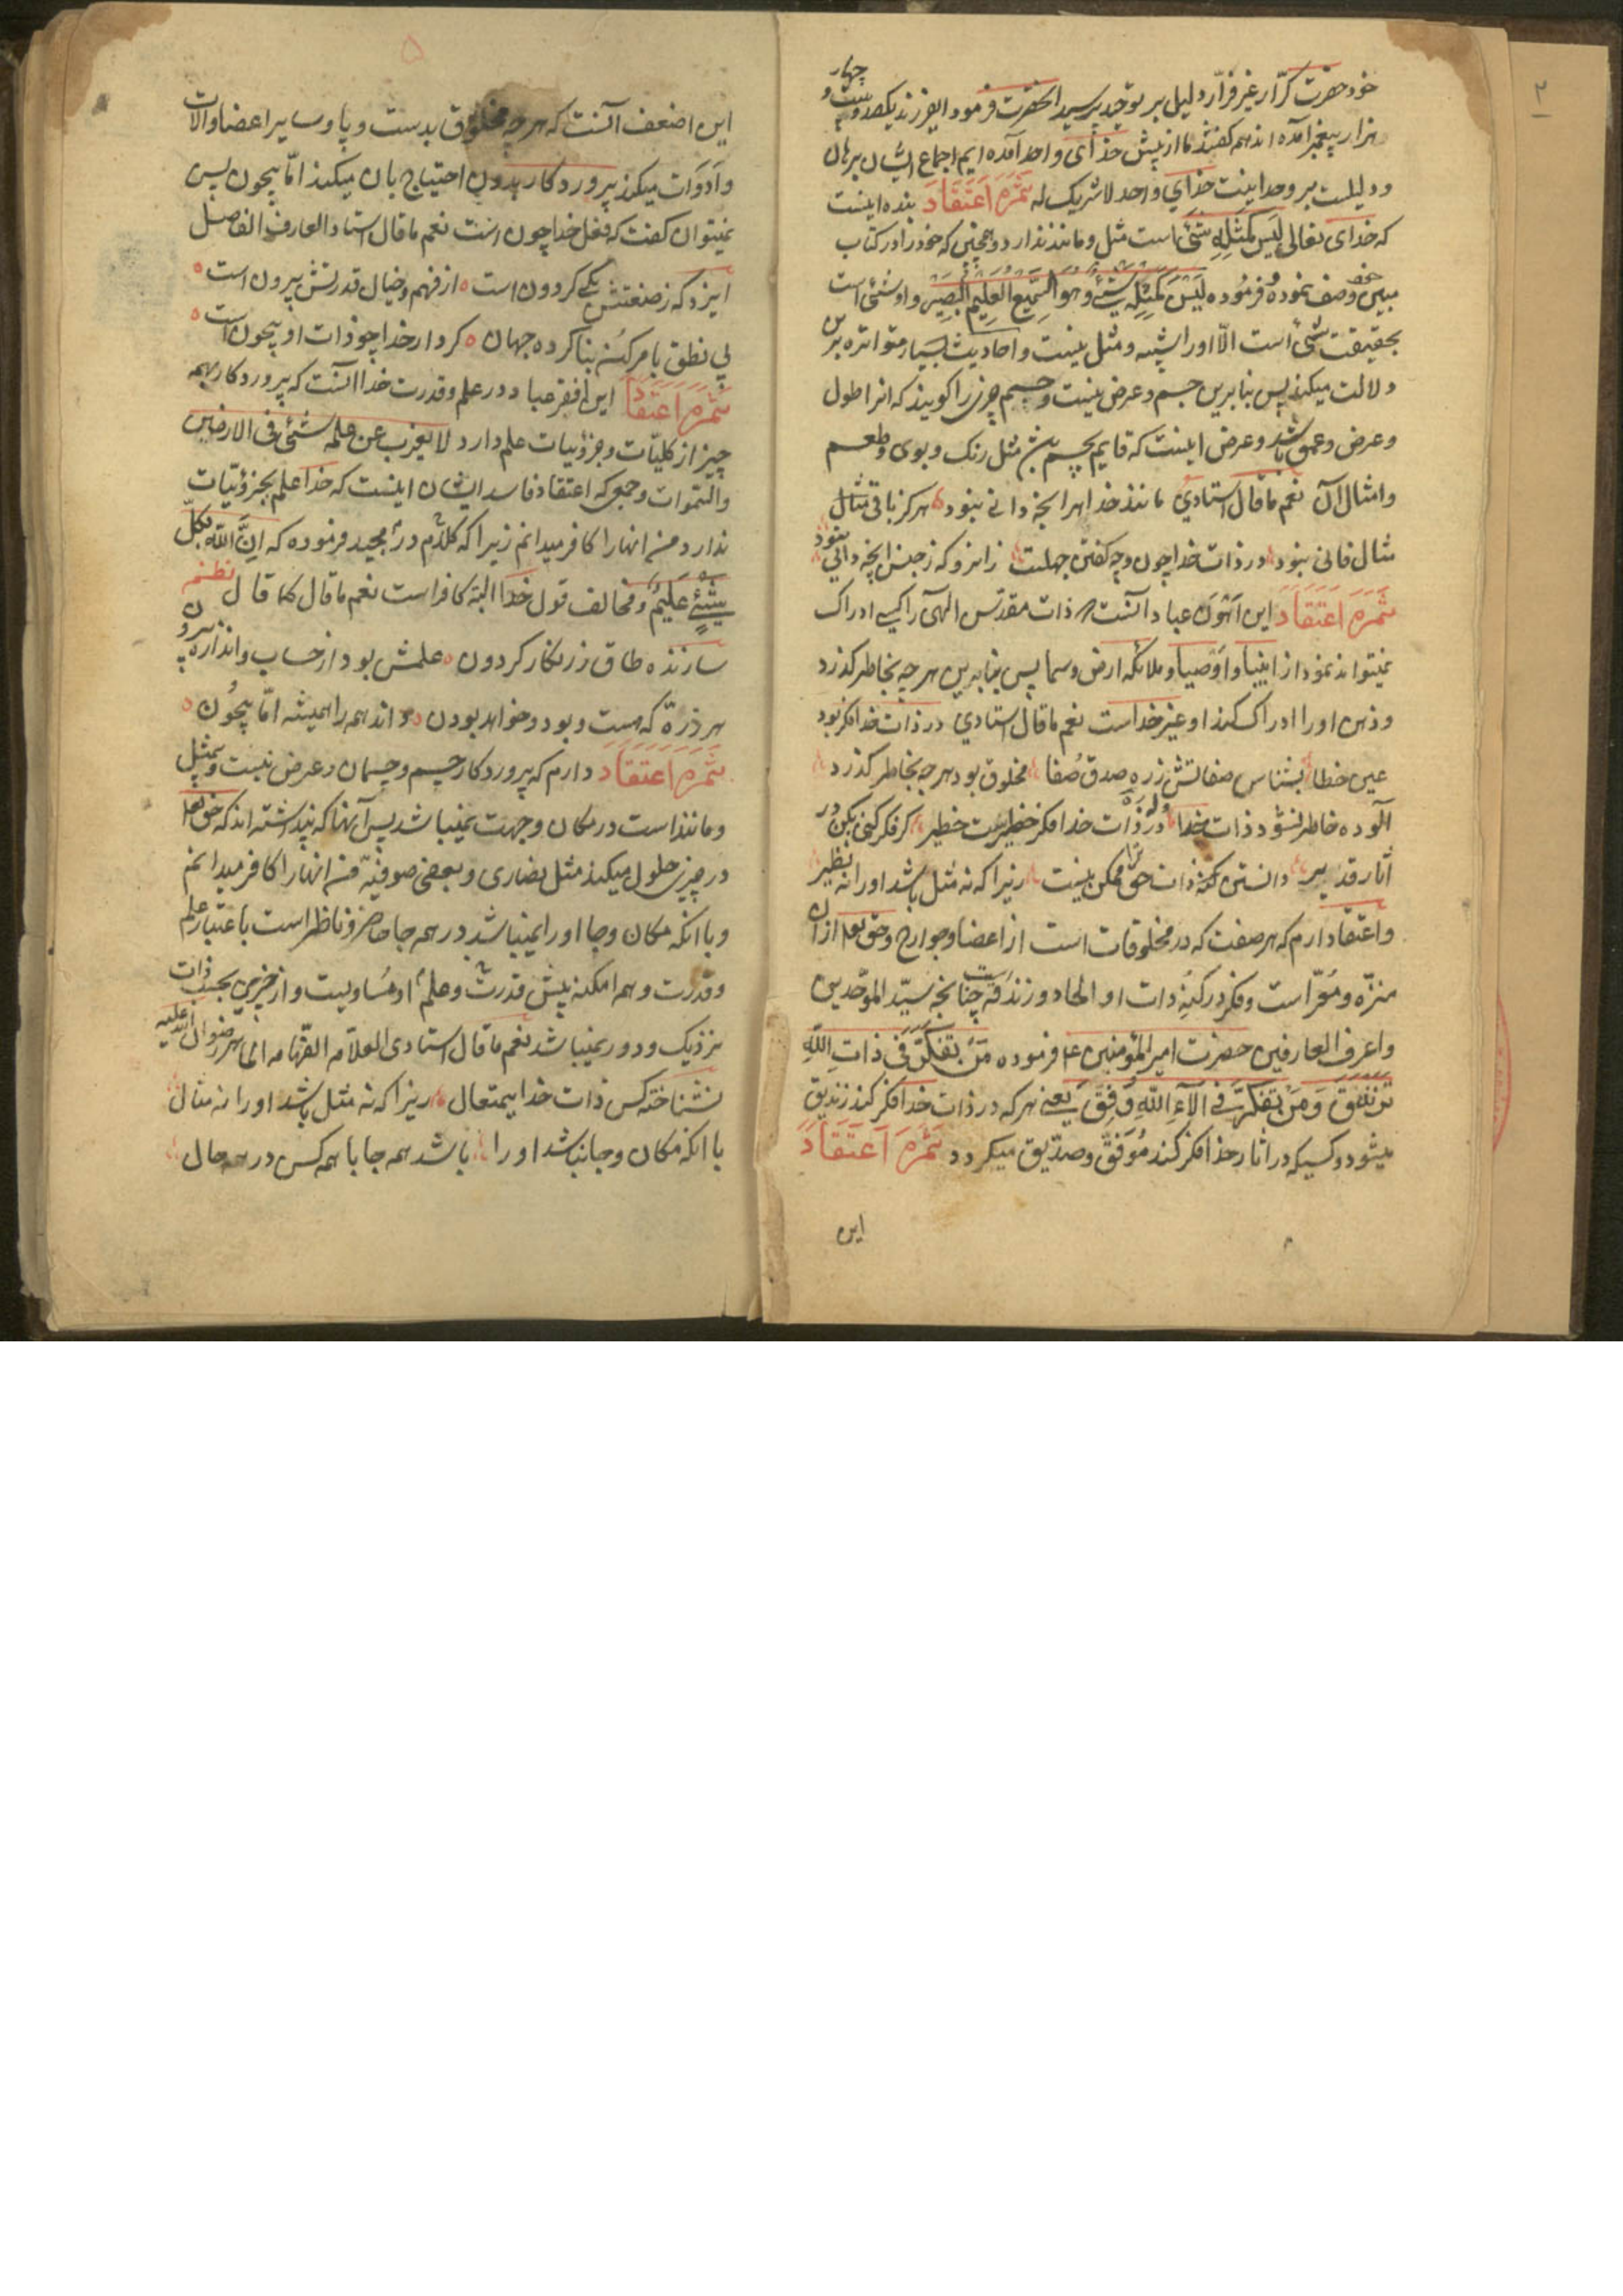 خود حضرت کرّار غیر فرّار دلیل بر توحید پرسید آنحضرت فرمود ایفرزند یکصد و بیست و چهار
هزار پیغمبر آمده اند همه کفتند ما از پیش خدای واحد آمده ایم اجماع ایشان برهان
و دلیلست بر وحدانیت خدای واحد لا شریک له ثمره اعتقاد بنده اینست
که خدای تعالی لیس کمثله شیء است مثل و مانند ندارد و همچنین که خود را در کتاب
مبین خود وصف نموده و فرموده لیس کمثله شیء و هو السمیع العلیم البصیر و او شیء است
بحقیقت شیء است الّا او را شبیه و مثل نیست و احادیث بسیار متواتره برین
دلالت میکند پس بنابرین جسم و عرض نیست و جسم چیزی را کویند که انرا طول
و عرض و عمق باشد و عرض اینست که قایم بجسم باشد مثل رنک و بوی و طعم
و امثال آن نعم ما قال استادی مانند خدا هر انچه دانی نبود هرکز باقی مثال
مثال فانی نبود در ذات خدا چون و چه کفتن جهلست زانرو که ز جنس انچه دانی نبود
ثمره اعتقاد این اهون عباد آنست که ذات مقدّس الهی را کسی ادراک
نمیتواند نمود از انبیا و اوصیا و ملائکه ارض و سما پس بنابرین هر چه بخاطر کذرد
و ذهن او را ادراک کند او غیر خداست نعم ما قال استادی در ذات خدا فکر بود
عین خطا بشناس صفاتش ز ره صدق و صفا مخلوق بود هر چه بخاطر کذرد
آلوده خاطر نشود ذات خدا وله در ذات خدا فکر خطیرست خطیر کر فکر کنی بکن در
آثار قدیر دانستن کنه ذات حق ممکن نیست زیرا که نه مثل باشد او را نه نظیر
و اعتقاد دارم که هر صفت که در مخلوقات است از اعضا و جوارح و حق تعالی از ان
منزّه و مبرّاست و فکر در کنه ذات او الحاد و زندقه است چنانچه سیّد الموحّدین
و اعرف العارفین حضرت امیر المؤمنین ع فرموده من تفکّر فی ذات الله
تزندق و من تفکّر فی آلاء الله وفّق یعنی هر که در ذات خدا فکر کند زندیق
میشود و کسیکه در اثار خدا فکر کند موفّق و صدّیق میکردد ثمره اعتقاد
این
۵
این اضعف آنست که هر چه مخلوق بدست و پا و سایر اعضا و الات
و ادوات میکند پرورد کار بدون احتیاج بان میکند امّا بیچون پس
نمیتوان کفت که فعل خدا چون است نعم ما قال استاد العارف الفاضل
ایزد که ز صنعتش یکی کردون است از فهم و خیال قدرتش بیرون است
بی نطق بامر کن بنا کرده جهان کردار خدا چو ذات او بیچون است
ثمره اعتقاد این افقر عباد در علم و قدرت خدا آنست که پروردکار بهمه
چیز از کلیّات و جزئیات علم دارد لا یعزب عن علمه شیء فی الارضین
والسموات و جمعی که اعتقاد فاسد ایشان اینست که خدا علم بجزئیّات
ندارد من انها را کافر میدانم زیرا که در کلام مجید فرموده که انّ الله بکلّ
شیء علیم و مخالف قول خدا البته کافر است نعم ما قال کما قال نظم
سازنده طاق زرنکار کردون علمش بود از حساب و اندازه برون
هر ذره که هست و بود و خواهد بودن داند همه را همیشه امّا بیچون
ثمره اعتقاد دارم که پروردکار جسم و جسمان و عرض نیست و بیمثل
و مانند است در مکان و جهت نمیباشد پس آنها که پنداشته اند که حق تعالی
در چیزی حلول میکند مثل نصاری و بعضی صوفیّه من انها را کافر میدانم
و با انکه مکان و جا او را نمیباشد در همه جا حاضر و ناظر است باعتبار علم
و قدرت و همه امکنه پیش قدرت و علم او مساویست و از چیزی بحسب ذات
نزدیک و دور نمیباشد نعم ما قال استادی العلامه الفهامه الماهر رضوان الله علیه
نشناخته کس ذات خدای متعال زیرا که نه مثل باشد او را نه مثال
با انکه مکان و جا نباشد او را باشد همه جا با همه کس در همه حال